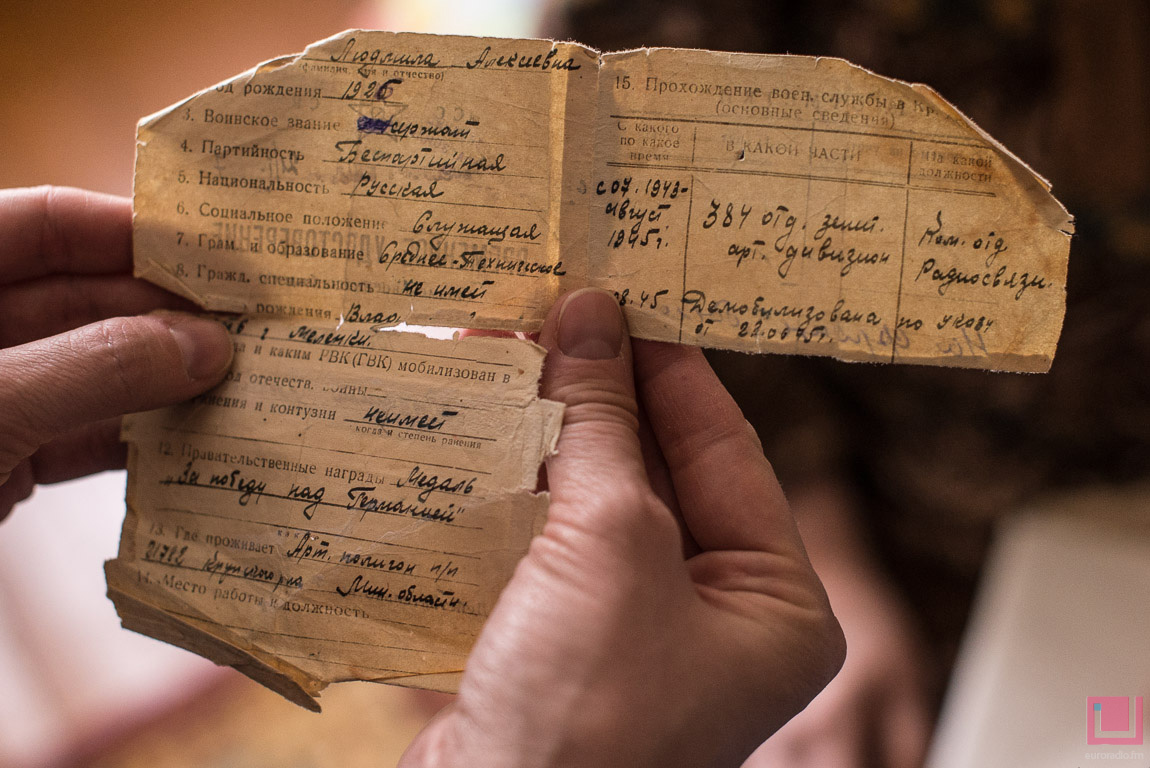 Людмила Алексеевна
(фамилия, имя и отчество)
од рождения 1926
3. Воинское звание сержант
4. Партийность Беспартийная
5. Национальность Русская
6. Социальное положение Служащая
7. Грам. и образование Средне-Техническое
8. Гражд. специальность не имеет
рождения Влад
г. Меленки.
и каким РВК (ГВК) мобилизован в
од отечеств. войны
нения и контузии не имеет
когда и степень ранения
12. Правительственные награды Медаль
"За победу над Германией"
13. Где проживает Арт. полигон п/п
21782 Крупского р-на Мин. области.
14. Место работы и должность
15. Прохождение воен. службы в Кр
(основные сведения)
С какого по какое время
В КАКОЙ ЧАСТИ
На какой должности
с 07. 1943-
август
1945 г.
384 отд. зенит.
арт. дивизион
Ком. отд.
Радиосвязи.
08.45
Демобилизована по указу
от
euroradio.fm